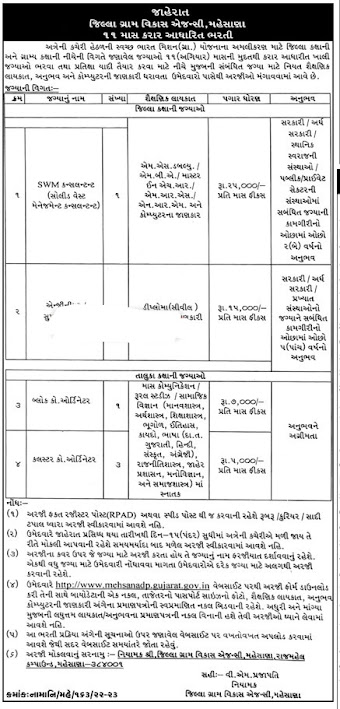 જાહેરાત
જિલ્લા ગ્રામ વિકાસ એજન્સી, મહેસાણા
૧૧ માસ કરાર આધારિત ભરતી
અત્રેની કચેરી હેઠળની સ્વચ્છ ભારત મિશન(ગ્રા.) યોજનાના અમલીકરણ માટે જિલ્લા કક્ષાની
અને ગ્રામ્ય કક્ષાની નીચેની વિગતે જણાવેલ જગ્યાઓ ૧૧(અગિયાર) માસની મુદતથી કરાર આધારીત ખાલી
જગ્યાઓ ભરવા તથા પ્રતિક્ષા યાદી તૈયાર કરવા માટે નીચે મુજબની સંબંધિત જગ્યા માટે નિયત શૈક્ષણિક
લાયકાત, અનુભવ અને કોમ્પ્યુટરની જાણકારી ધરાવતા ઉમેદવારો પાસેથી અરજીઓ મંગાવવામાં આવે છે.
જગ્યાની વિગત:-
ક્રમ જગ્યાનું નામ સંખ્યા શૈક્ષણિક લાયકાત પગાર ધોરણ અનુભવ
જિલ્લા કક્ષાની જગ્યાઓ
૧ SWM કન્સલ્ટન્ટ (સોલીડ વેસ્ટ મેનેજમેન્ટ કન્સલ્ટન્ટ) ૧ એમ.એસ.ડબલ્યુ. / એમ.બી.એ./ માસ્ટર ઈન એચ.આર./ એમ.આર.એસ./ એન.આર.એમ. અને કોમ્પ્યુટરના જાણકાર રૂા.૨૫,૦૦૦/- પ્રતિ માસ ફીક્સ સરકારી / અર્ધ સરકારી / સ્થાનિક સ્વરાજની સંસ્થાઓ / પબ્લીક/પ્રાઈવેટ સેકટરની સંસ્થાઓમાં સબંધિત જગ્યાની કામગીરીનો ઓછામાં ઓછો ૨(બે) વર્ષનો અનુભવ
૨ ડીપ્લોમા(સીવીલ) રૂા.૧૫,૦૦૦/- પ્રતિ માસ ફીક્સ સરકારી / અર્ધ સરકારી / પ્રખ્યાત સંસ્થાઓનો જગ્યાને સબંધિત કામગીરીનો ઓછામાં ઓછો ૫(પાંચ) વર્ષનો અનુભવ
તાલુકા કક્ષાની જગ્યાઓ
૩ બ્લોક કો.ઓર્ડિનેટર ૧ માસ કોમ્યુનિકેશન / રૂરલ સ્ટડીઝ / સામાજિક વિજ્ઞાન (માનવશાસ્ત્ર, અર્થશાસ્ત્ર, શિક્ષાશાસ્ત્ર, ભૂગોળ, ઈતિહાસ, કાયદો, ભાષા (દા.ત. ગુજરાતી, હિન્દી, સંસ્કૃત, અંગ્રેજી), રાજનીતિશાસ્ત્ર, જાહેર પ્રશાસન, મનોવિજ્ઞાન, અને સમાજશાસ્ત્ર) માં સ્નાતક રૂા.૭,૦૦૦/- પ્રતિ માસ ફીક્સ અનુભવને અગ્રીમતા
૪ કલસ્ટર કો.ઓર્ડિનેટર ૩ રૂા.૫,૦૦૦/- પ્રતિ માસ ફીક્સ
નોંધ:-
(૧) અરજી ફક્ત રજીસ્ટર પોસ્ટ(RPAD) અથવા સ્પીડ પોસ્ટ થી જ કરવાની રહેશે રૂબરૂ/કુરિયર / સાદી
ટપાલ દ્વારા અરજી સ્વીકારવામાં આવશે નહિ.
(૨) ઉમેદવારે જાહેરાત પ્રસિધ્ધ થયા તારીખથી દિન-૧૫(પંદર) સુધીમાં અત્રેની કચેરીએ મળી જાય તે
રીતે મોકલી આપવાની રહેશે સમયમર્યાદા બાદ મળેલ અરજી સ્વીકારવામાં આવશે નહી.
(૩) અરજીના કવર ઉપર જે જગ્યા માટે અરજી કરતા હોય તે જગ્યાનું નામ ફરજીયાત દર્શાવવાનું રહેશે.
એકથી વધુ જગ્યા માટે ઉમેદવારી નોંધાવવા માગતા ઉમેદવારોએ દરેક જગ્યા માટે અલગથી અરજી
કરવાની રહેશે.
(૪) ઉમેદવારે http://www.mehsanadp.gujarat.gov.in વેબસાઈટ પરથી અરજી ફોર્મ ડાઉનલોડ
કરી તેની સાથે બાયોડેટાની એક નકલ, તાજેતરનો પાસપોર્ટ સાઈઝનો ફોટો, શૈક્ષણિક લાયકાત, અનુભવ
કોમ્પ્યુટરની જાણકારી અંગેના પ્રમાણપત્રોની સ્વપ્રમાણિત નકલ બિડવાની રહેશે. અધુરી અને માંગ્યા
મુજબની લઘુત્તમ લાયકાત/અનુભવના પ્રમાણપત્રની નકલ વિનાની હશે તેવી અરજીઓ ધ્યાને લેવામાં
આવશે નહિ.
(૫) આ ભરતી પ્રક્રિયા અંગેની સૂચનાઓ ઉપર જણાવેલ વેબસાઈટ પર વખતોવખત અપલોડ કરવામાં
આવશે જેથી સદર વેબસાઈટ સમયાંતરે જોતા રહેવું.
(૬) અરજી મોકલવાનું સરનામુ :- નિયામક શ્રી, જિલ્લા ગ્રામ વિકાસ એજન્સી, મહેસાણા, રાજમહેલ
કમ્પાઉન્ડ, મહેસાણા-૩૮૪૦૦૧
સહી:- વી.એમ.પ્રજાપતિ
નિયામક
ક્રમાંક:નામાનિ/મહે/૧૬૩/૨૨-૨૩ જિલ્લા ગ્રામ વિકાસ એજન્સી, મહેસાણા